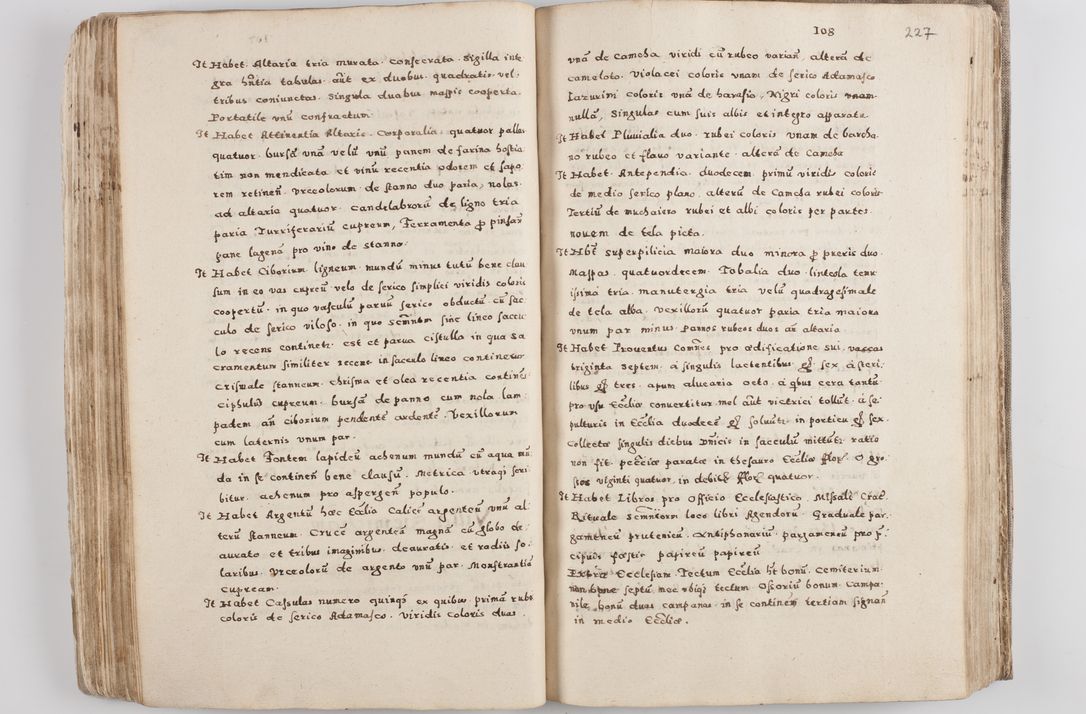 It Habet Altaria tria murata consecrata. Sigilla inte
gra hñtia tabulas aũt ex duobus quadratis vel
tribus coniunctas. Singula duabus mappis cooperta.
Portatile vnũ confractum.
It Habet Attinentia Altaris. Corporalia quatuor pallas
quatuor. bursã vnã velũ vnũ panem de farina hostia
tim non mendicata et vinũ recentia odorem et sapo
rem retineñ. Vrceolorum de stanno duo paria, nolas
ad altaria quatuor. Candelabrorũ de ligno tria
paria Turriferariũ cupreum, Ferramenta p pinsañ
pane lagenã pro vino de stanno.
It Habet Ciborium ligneum mundũ minus tutũ bene clau
sum in eo vas cupreũ velo de serico simplici viridis coloris
coopertũ. in quo vasculũ paruũ serico obductũ cũ sac
culo de serico viloso. in quo scm̃ntum sine lineo saccu
lo recens continetr. est et parua cistulla in qua sa
cramentum similiter recens in sacculo lineo continetur
Crismale stanneum. chrisma et olea recentia contineñ
Ciphulũ cupreum. bursã de panno cum nola lam
padem añ ciborium pendentẽ ardentẽ. Vexillorum
cum laternis vnum par.
It Habet Fontem lapideũ achenum mundũ cũ aqua mũ
da in se contineñ bene clausũ. Metrica vtraqz scri
bitur. achenum pro aspergeñ populo.
It Habet Argentũ hæc Ecclia Calicẽ argenteũ vnũ al
terũ stanneum. Crucẽ argenteã magnã cũ globo de
aurato et tribus imaginibus deauratis et radiis so
laribus. Vrceolorũ de argento vnũ par. Monstrantiã
cupream.
It Habet Casulas numero quinqz ex quibus prima rubri
coloris de serico Adamasco. viridis coloris duas.
108 227
vnã de Camcha viridi cũ rubeo variañ, alterã de
cameloto. Violacei coloris vnam de serico Adamasco
Lazurini coloris vnã de harasio, Nigri coloris vnam
nullã, Singulas cum suis albis et integro apparatu
It Habet Pluuialia duo. rubei coloris vnam de barcha
no rubeo et flauo variante. alterã de Camcha
It Habet. Antependia duodecem. primũ viridis coloris
de medio serico plano. alterũ de Camcha rubei coloris
Tertiũ de muchaiero rubei et albi coloris per partes.
nouem de tela picta.
It Hbt superpilicia maiora duo minora p pueris duo.
Mappas quatuordecem. Tobalia duo. linteola tenu
issima tria. manutergia tria velũ quadragesimale
de tela alba. Vexillorũ quatuor paria tria maiora
vnum par minus. pannos rubeos duos añ altaria.
It Habet Prouentus Com̃nes pro ædificatione sui, vaccas
triginta septem. à singulis lactentibus gr̃ sex, à steri
libus gr̃ tres. apum aluearia octo. à qbus cera tantũ
pro vsu Eccliæ conuertitur mel aũt victrici tollitr. à se
pulturis in Ecclia duodecẽ gr̃ soluũtr. in porticu gr̃ sex.
Collecta singulis diebus Dñicis in sacculũ mittũtr. ratio
non fit. pecuniæ paratæ in thesauro Eccliæ florẽ. 0 gro
ssos viginti quatuor, in debitis florẽ quatuor.
It Habet Libros pro Officio Ecclesiastico. Missale Crac.
Rituale Scmñtorum loco libri Agendorũ. Graduale par
gameneũ prutenicũ. Antiphonariũ pargameneũ pro p̃
cipuis festis papireũ papireũ
Extra Ecclesiam. Tectum Eccliæ ht bonũ. Cemiterium
non bene septũ nec vbiqz tectum Ossoriũ bonum. Campa
nile bonũ duas campanas in se contineñ tertiam signañ
in medio Eccliæ.